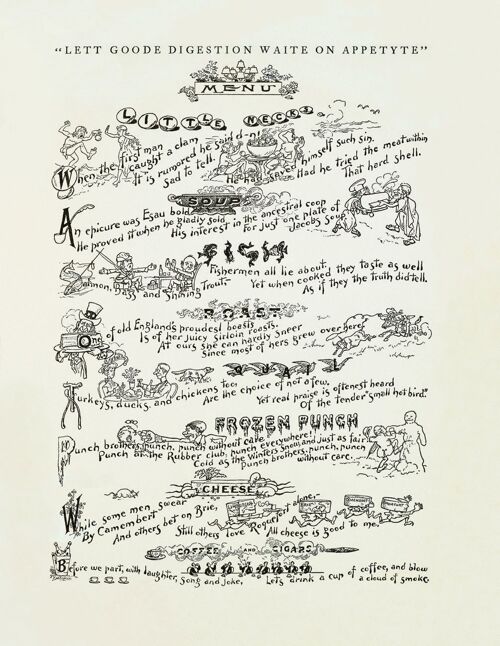 "LETT GOODE DIGESTION WAITE ON APPETYTE"
MENU
LITTLE NECKS
When the first man caught a clam
It is rumored he said d-n!
Sad to tell.
He had saved himself such sin.
Had he tried the meat within
That hard shell.
SOUP
An epicure was Esau bold
He proved it when he gladly sold
His interest in the ancestral coop
For just one plate of Jacobs Soup
FISH
Salmon, Bass and Shining Trout-
Fishermen all lie about.
Yet when cooked they taste as well
As if they the truth did tell.
ROAST
One of old England's proudest boasts
Is of her juicy Sirloin roasts.
At ours she can hardly sneer
Since most of hers grew over here
QUAIL
Turkeys, ducks, and chickens too.
Are the choice of not a few.
Yet real praise is oftenest heard
Of the tender "small hot bird."
FROZEN PUNCH
Punch brothers, punch, punch without care
Punch at the Rubber club, punch everywhere!
Cold as the Winters Snow, and just as fair
Punch brothers, punch, punch without care.
CHEESE
While some men swear
By Camembert
And others bet on Brie,
Still others love Roquefort alone,-
All cheese is good to me.
COFFEE AND CIGARS
Before we part, with laughter, Song and Joke,
Let's drink a cup of coffee, and blow a cloud of smoke.